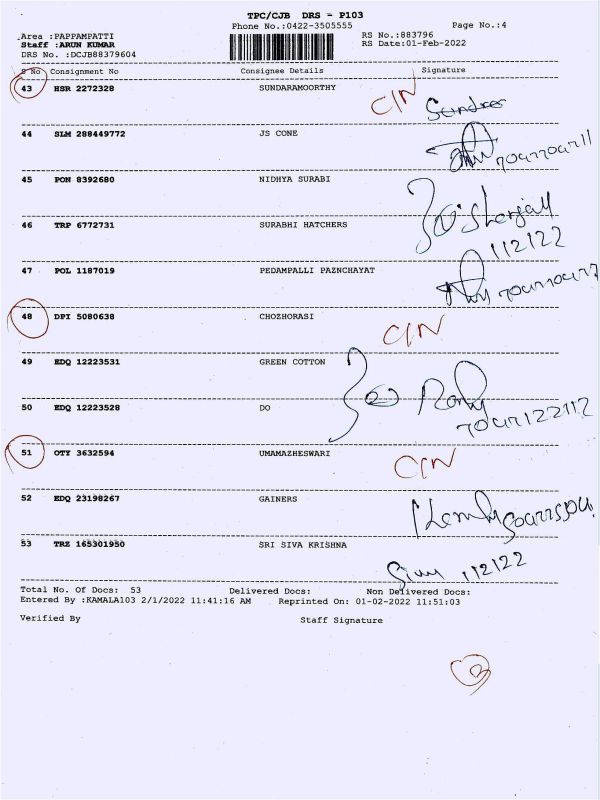 TPC/CJB DRS - P103
Phone No.:0422-3505555 Page No.:4
Area :PAPPAMPATTI RS No.:883796
Staff :ARUN KUMAR RS Date:01-Feb-2022
DRS No. :DCJB88379604
S No Consignment No Consignee Details Signature
43 HSR 2272328 SUNDARAMOORTHY C/N
44 SLM 288449772 JS CONE
45 PON 8392680 NIDHYA SURABI
46 TRP 6772731 SURABHI HATCHERS
112122
47 POL 1187019 PEDAMPALLI PAZNCHAYAT
48 DPI 5080638 CHOZHORASI C/N
49 EDQ 12223531 GREEN COTTON
50 EDQ 12223528 DO
51 OTY 3632594 UMAMAZHESWARI C/N
52 EDQ 23198267 GAINERS
53 TRZ 165301950 SRI SIVA KRISHNA
112122
Total No. Of Docs: 53 Delivered Docs: Non Delivered Docs:
Entered By :KAMALA103 2/1/2022 11:41:16 AM Reprinted On: 01-02-2022 11:51:03
Verified By Staff Signature
3